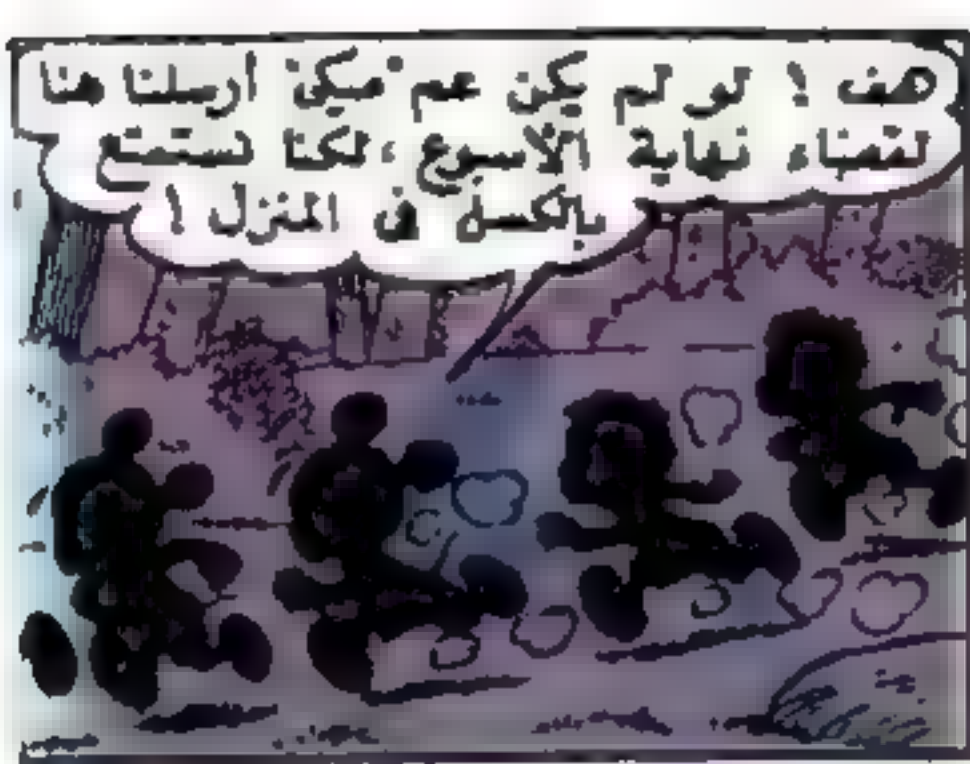 هف ! لو لم يكن عم ميكى أرسلنا هنا
لقضاء نهاية الأسبوع ، لكنا نستمتع
بالكسل فى المنزل !